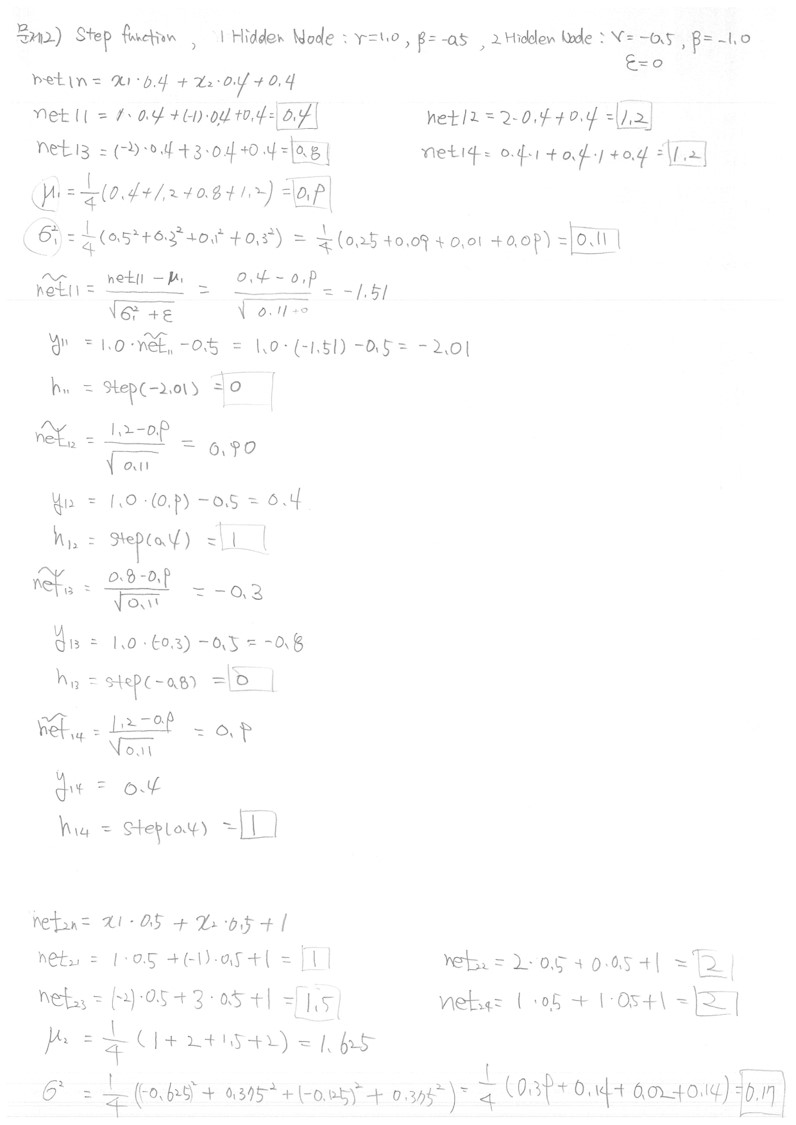 문제2) Step function, 1 Hidden Node : γ=1.0, β=-0.5, 2 Hidden Node : γ=-0.5, β=-1.0
ε=0
net1n = x1·0.4 + x2·0.4 + 0.4
net11 = 1·0.4 + (-1)·0.4 + 0.4 = 0.4 net12 = 2·0.4 + 0.4 = 1.2
net13 = (-2)·0.4 + 3·0.4 + 0.4 = 0.8 net14 = 0.4·1 + 0.4·1 + 0.4 = 1.2
μ₁ = 1/4 (0.4 + 1.2 + 0.8 + 1.2) = 0.9
σ₁² = 1/4 (0.5² + 0.3² + 0.1² + 0.3²) = 1/4 (0.25 + 0.09 + 0.01 + 0.09) = 0.11
ñet11 = (net11 - μ₁)/√(σ₁² + ε) = (0.4 - 0.9)/√(0.11 + 0) = -1.51
y₁₁ = 1.0·ñet₁₁ - 0.5 = 1.0·(-1.51) - 0.5 = -2.01
h₁₁ = step(-2.01) = 0
ñet₁₂ = (1.2 - 0.9)/√0.11 = 0.90
y₁₂ = 1.0·(0.9) - 0.5 = 0.4
h₁₂ = step(0.4) = 1
ñet₁₃ = (0.8 - 0.9)/√0.11 = -0.3
y₁₃ = 1.0·(-0.3) - 0.5 = -0.8
h₁₃ = step(-0.8) = 0
ñet₁₄ = (1.2 - 0.9)/√0.11 = 0.9
y₁₄ = 0.4
h₁₄ = step(0.4) = 1
net₂ₙ = x1·0.5 + x2·0.5 + 1
net₂₁ = 1·0.5 + (-1)·0.5 + 1 = 1 net₂₂ = 2·0.5 + 0·0.5 + 1 = 2
net₂₃ = (-2)·0.5 + 3·0.5 + 1 = 1.5 net₂₄ = 1·0.5 + 1·0.5 + 1 = 2
μ₂ = 1/4 (1 + 2 + 1.5 + 2) = 1.625
σ² = 1/4 ((-0.625)² + 0.375² + (-0.125)² + 0.375²) = 1/4 (0.39 + 0.14 + 0.02 + 0.14) = 0.17